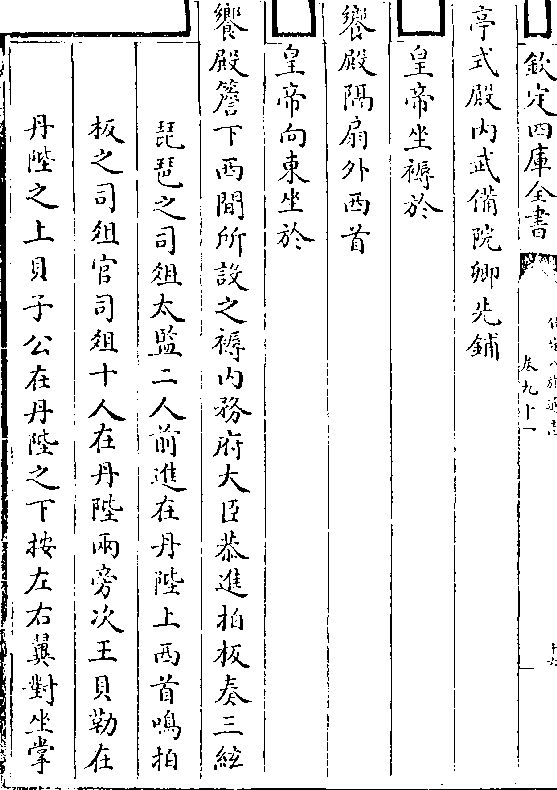 欽定四庫全書
卷九十一
亭式殿内武備院卿先鋪
皇帝坐褥於
饗殿隔扇外西首
皇帝向東坐於
饗殿簷下西間所設之褥内務府大臣恭進拍板奏三絃
琵琶之司俎太監二人前進在丹陛上西首鳴拍
板之司俎官司俎十人在丹陛兩旁次王貝勒在
丹陛之上貝子公在丹陛之下按左右翼對坐掌